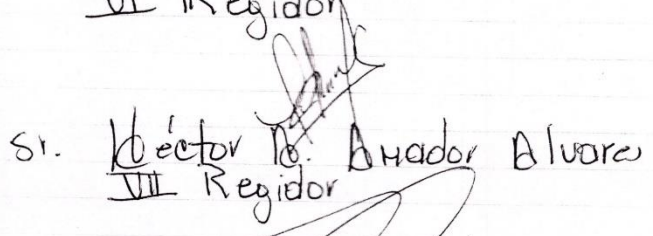 VI Regidor
Sr. Héctor D. Amador Alvares
VII Regidor